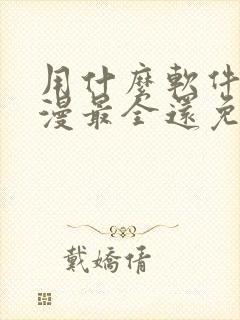 用什麼軟件
漫最全還免
戴嬌倩